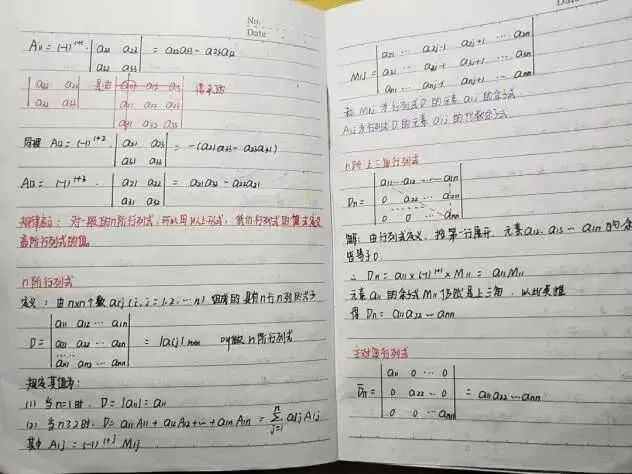 No.
Date
A₁₁ = (-1)¹⁺¹ · | a₂₂ a₂₃ ; a₃₂ a₃₃ | = a₂₂a₃₃ - a₂₃a₃₂
| a₂₂ a₂₃ ; a₃₂ a₃₃ | 是由 | a₁₁ a₁₂ a₁₃ ; a₂₁ a₂₂ a₂₃ ; a₃₁ a₃₂ a₃₃ | 得来的
同理 A₁₂ = (-1)¹⁺² · | a₂₁ a₂₃ ; a₃₁ a₃₃ | = -(a₂₁a₃₃ - a₂₃a₃₁)
A₁₃ = (-1)¹⁺³ · | a₂₁ a₂₂ ; a₃₁ a₃₂ | = a₂₁a₃₂ - a₂₂a₃₁
对一般的n阶行列式，可以用以上形式，
高阶行列式的值。
n阶行列式
定义：由n×n个数aᵢⱼ(i,j=1,2,…n)组成的具有n行n列的式子
D = | a₁₁ a₁₂ … a₁ₙ ; a₂₁ a₂₂ … a₂ₙ ; …… ; aₙ₁ aₙ₂ … aₙₙ | = |aᵢⱼ|ₙₓₙ 叫做n阶行列式
规定其值为：
(1) 当n=1时，D = |a₁₁| = a₁₁
(2) 当n≥2时，D = a₁₁A₁₁ + a₁₂A₁₂ + … + a₁ₙA₁ₙ = Σⁿⱼ₌₁ a₁ⱼA₁ⱼ
其中 A₁ⱼ = (-1)¹⁺ʲ M₁ⱼ
Date
M₁ⱼ = | a₂₁ … a₂ⱼ₋₁ a₂ⱼ₊₁ … a₂ₙ ; a₃₁ … a₃ⱼ₋₁ a₃ⱼ₊₁ … a₃ₙ ; aₙ₁ … aₙⱼ₋₁ aₙⱼ₊₁ … aₙₙ |
称 M₁ⱼ 为行列式D的元素a₁ⱼ的余子式
A₁ⱼ为行列式D的元素a₁ⱼ的代数余子式
n阶上三角行列式
Dₙ = | a₁₁ a₁₂ … a₁ₙ ; 0 a₂₂ … a₂ₙ ; …… ; 0 0 … aₙₙ |
解：由行列式定义，按第一行展开，元素a₁₂, a₁₃ … a₁ₙ的余
皆等于0.
∴ Dₙ = a₁₁ × (-1)¹⁺¹ × M₁₁ = a₁₁M₁₁
元素a₁₁的余子式M₁₁仍然是上三角，以此类推
得 Dₙ = a₁₁a₂₂ … aₙₙ
主对角行列式
D̄ₙ = | a₁₁ 0 … 0 ; 0 a₂₂ … 0 ; 0 0 … aₙₙ | = a₁₁a₂₂ … aₙₙ